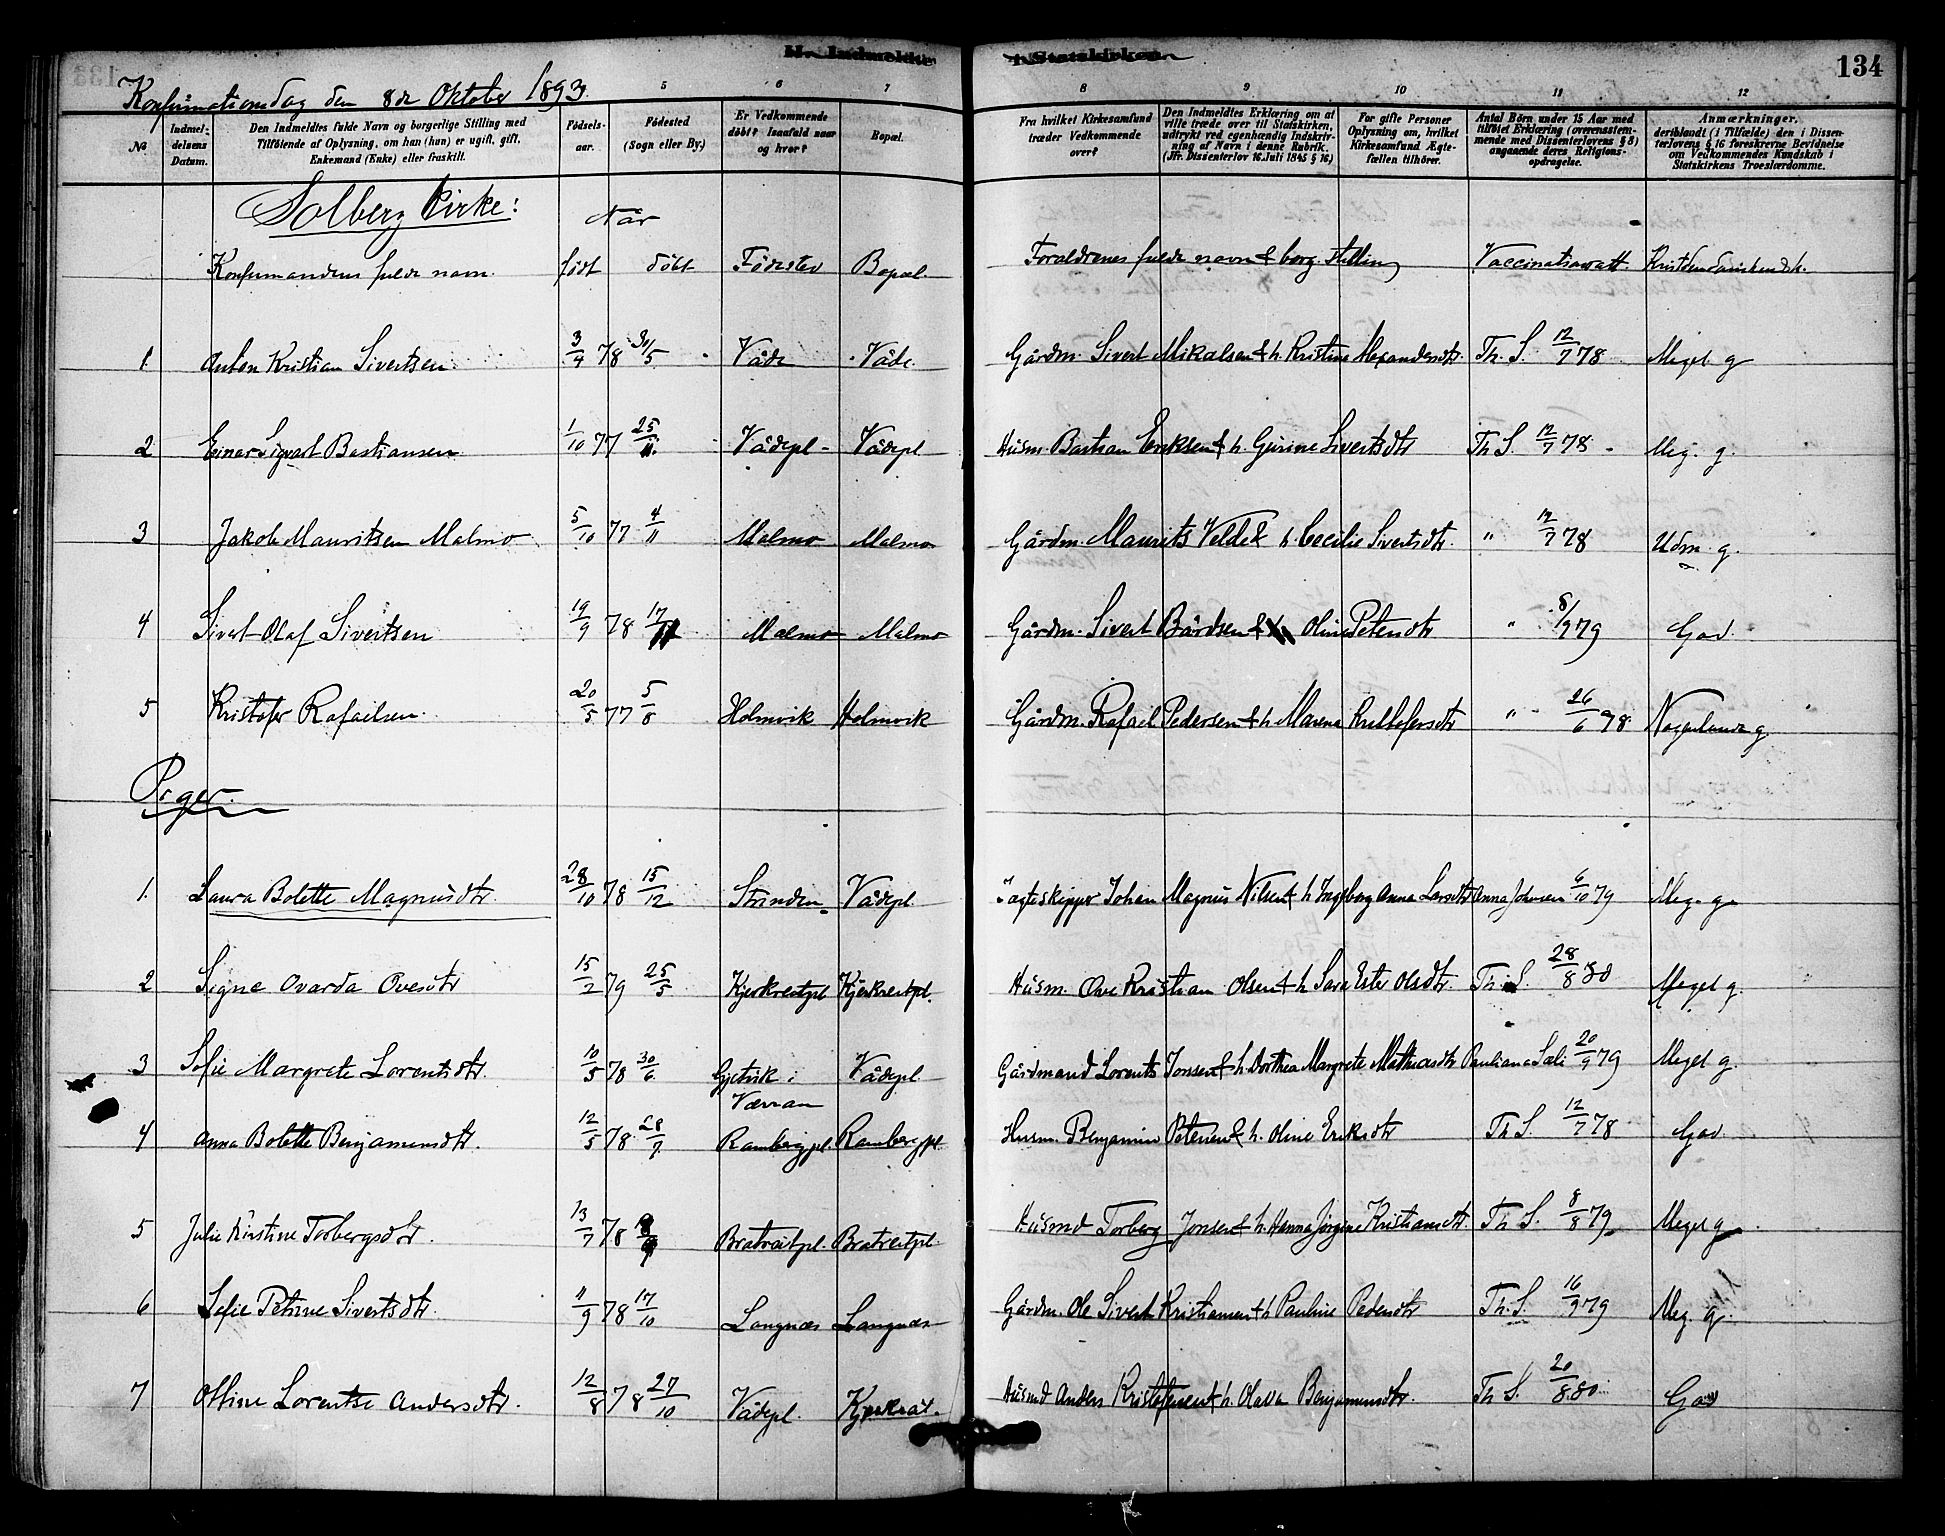 H. Indmeldte i Statskirken.
134
Konfirmationsdag den 8de Oktober 1893.
5 6 7 8 9 10 11 12
No
Indmeldelsens Datum.
Den Indmeldtes fulde Navn og borgerlige Stilling med Tilføiende af Oplysning, om han (hun) er ugift, gift, Enkemand (Enke) eller fraskilt.
Fødselsaar.
Fødested (Sogn eller By.)
Er Vedkommende døbt? Isaafald naar og hvor?
Bopæl.
Fra hvilket Kirkesamfund træder Vedkommende over?
Den Indmeldtes Erklæring om at ville træde over til Statskirken, udtrykt ved egenhændig Indskrivning af Navn i denne Rubrik. (Jfr. Dissenterlov 16. Juli 1845 § 16)
For gifte Personer Oplysning om, hvilket Kirkesamfund Ægtefællen tilhører.
Antal Børn under 15 Aar med tilføiet Erklæring (overensstemmende med Dissenterlovens § 8) angaaende deres Religionsopdragelse.
Anmærkninger, deriblandt (i Tilfælde) den i Dissenterlovens § 16 foreskrevne Bevidnelse om Vedkommendes Kundskab i Statskirkens Troeslærdomme.
Solberg Kirke:
Når
Konfirmandens fulde navn. født døbt Fødested Bopæl. Forældrenes fulde navn & borg. stilling Vaccinationsatt.
1. Anton Kristian Sivertsen 3/4 78 30/5 Våde Våde. Gårdm. Sivert Mikalsen & h. Kristine Alexandersdtr. Th. S. 12/7 78 Meget g
2 Einar Sigvart Bastiansen 1/10 77 25/11. Vådepl - Vådepl Husm. Bastian Eriksen & h. Gurine Sivertsdtr Th S. 12/7 78 - Meg. g.
3 Jakob Mauritsen Malmo 5/10 77 4/11 Malmo Malmo Gårdm. Maurits Velde & h. Cecilie Sivertsdtr. " 12/7 78 Udm. g.
4 Sivert Olaf Sivertsen 19/9 78 17/11 Malmo Malmo Gårdm. Sivert Bårdsen & h Oline Petersdtr " 8/9 79 God.
5 Kristofer Rafaelsen. 20/5 77 5/8 Holmvik Holmvik Gårdm. Rafael Pedersen & h Marena Kristofersdtr " 26/6 78. Nogenlunde g.
Piger.
1. Laura Bolette Magnusdtr. 28/10 78 15/12 Strinden Vådepl Jagteskipper Johan Magnus Nilsen & h Ingeborg Anna Larsdtr Anna Johnsen 6/10 79 Meg. g.
2 Signe Ovarda Ovesdtr 15/2 79 25/5 Kjerkreitpl Kjerkreitpl. Husm. Ove Kristian Olsen & h Sara Ester Olsdtr. Th. S. 28/8 80 Meget g.
3 Sofie Margrete Lorentsdtr. 10/5 78 30/6 Gjetvik i Værran Vådepl Gårdmand Lorents Jonsen & h. Dorthea Margrete Mathiasdtr Pauliana Sæli 20/9 79 Meget g.
4 Anna Bolette Benjaminsdtr. 12/5 78 28/7 Rambergpl. Rambergpl. Husm. Benjamin Petersen & h. Oline Eriksdtr Th S. 12/7 78 God.
5 Julie Kirstine Torbergsdtr. 13/7 78 Bratreitpl. Bratreitpl. Husmd Torberg Jonsen & h. Hanna Jørgine Kristiansdtr. Th S. 8/8 79 Meget g
6 Sofie Petrine Sivertsdtr. 11/9 78 17/10 Langnæs Langnæs Gårdm. Ole Sivert Kristiansen & h Pauline Pedersdtr Th. S. 16/9 79 Meg. g.
7 Ottine Lorentse Andersdtr. 12/8 78 27/10 Vådepl. Husmd Anders Kristofersen & h. Olava Benjaminsdtr. Th S. 20/8 80 God